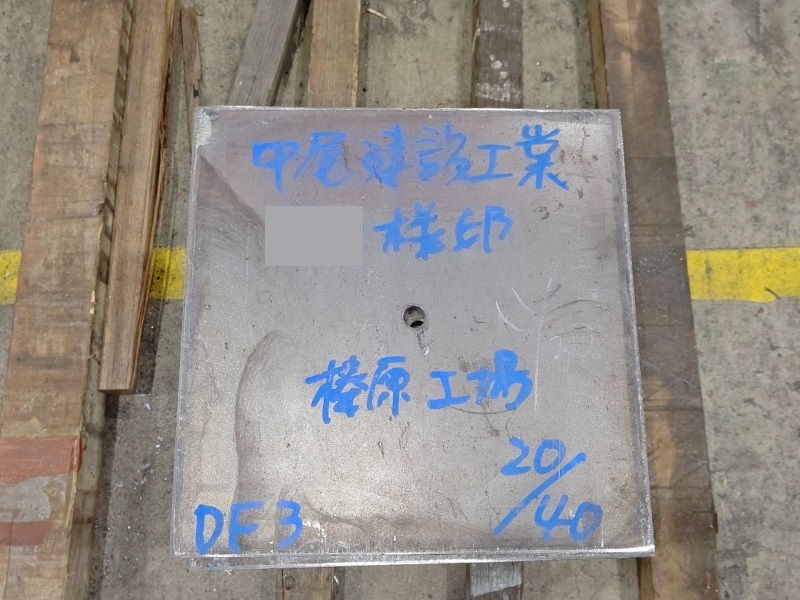 中尾建設工業
様邸
榛原工場
20/40
DF3